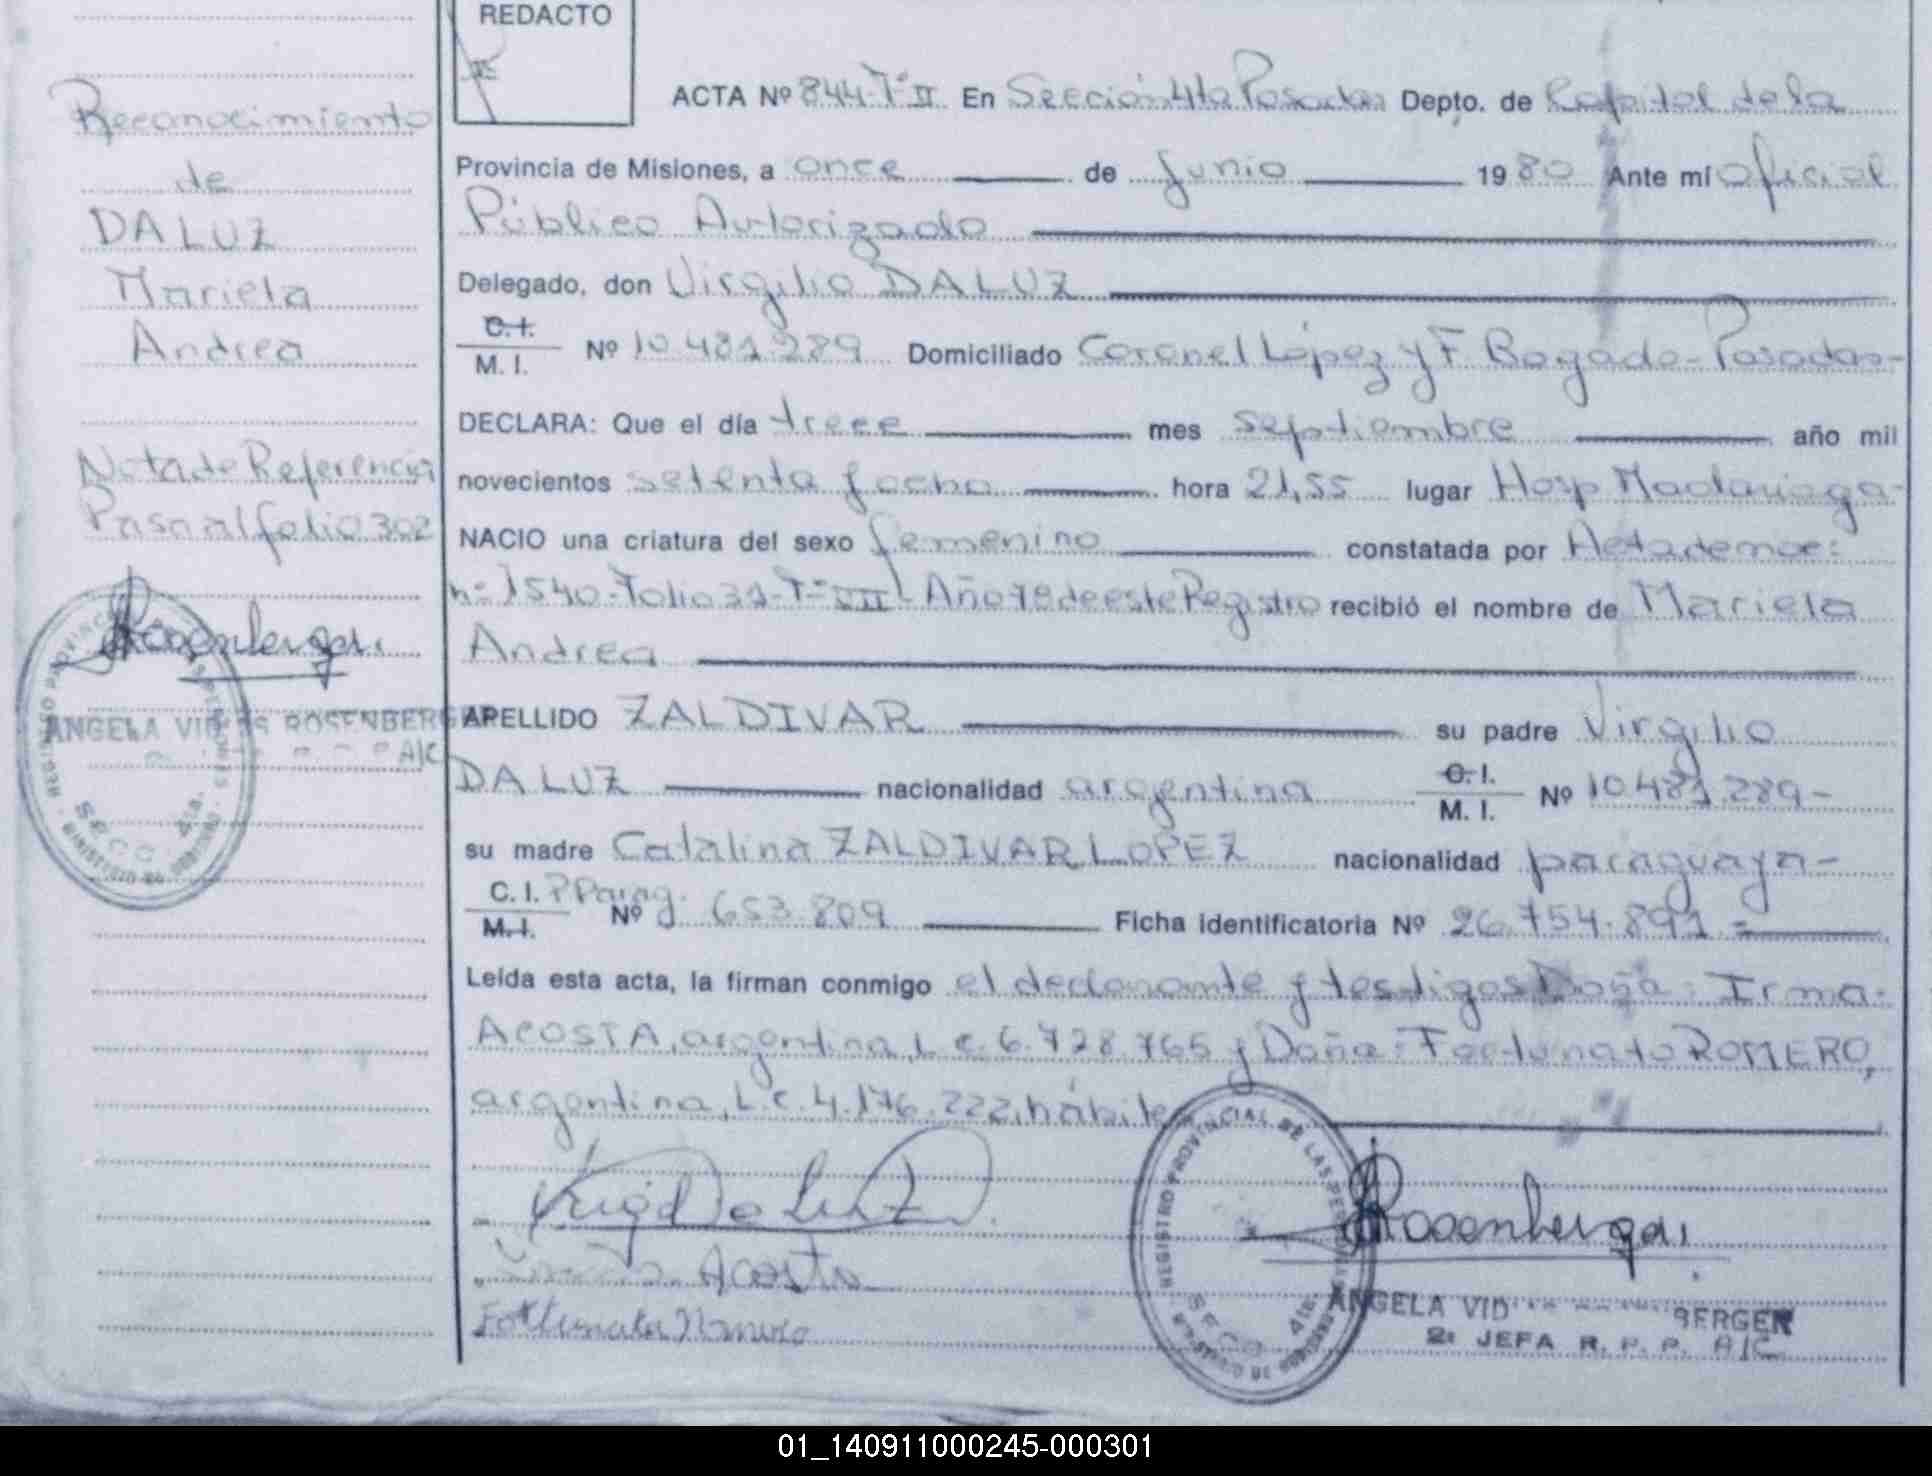 REDACTO
ACTA Nº 844-Tº II En Sección 4ta Posadas Depto. de Capital de la
Provincia de Misiones, a once de Junio 1980 Ante mí Oficial
Público Autorizado
Delegado, don Virgilio DA LUZ
C.I. M.I. Nº 10.481.289 Domiciliado Coronel López y F. Bogado - Posadas-
DECLARA: Que el día trece mes septiembre año mil
novecientos setenta y ocho hora 21,55 lugar Hosp Madariaga-
NACIO una criatura del sexo femenino constatada por Acta de nac:
nº 1540-Folio 31-Tº VII-Año 78 de este Registro recibió el nombre de Mariela
Andrea
APELLIDO ZALDIVAR su padre Virgilio
DA LUZ nacionalidad argentina C.I. M.I. Nº 10.481.289-
su madre Catalina ZALDIVAR LOPEZ nacionalidad paraguaya-
C.I. M.I. P. Parag. Nº 653.809 Ficha identificatoria Nº 26.754.891=
Leída esta acta, la firman conmigo el declarante y testigos Doña: Irma
ACOSTA, argentina, L.C. 6.728.765 y Doña: Fortunata ROMERO,
argentina, L.C. 4.176.222, hábiles
Acosta
Fortunata Romero
Rosenberger
REGISTRO PROVINCIAL DE LAS PERSONAS
SECC. 4ta.
MINISTERIO DE GOBIERNO
ANGELA VID BERGER
2: JEFA R. P. P. A/C
Reconocimiento
de
DA LUZ
Mariela
Andrea
Nota de Referencia
Pasa al folio 302
Rosenberger
ANGELA VID ES ROSENBERGER
A/C
REGISTRO PROVINCIAL DE LAS PERSONAS
SECC. 4ta.
MINISTERIO DE GOBIERNO
01_140911000245-000301